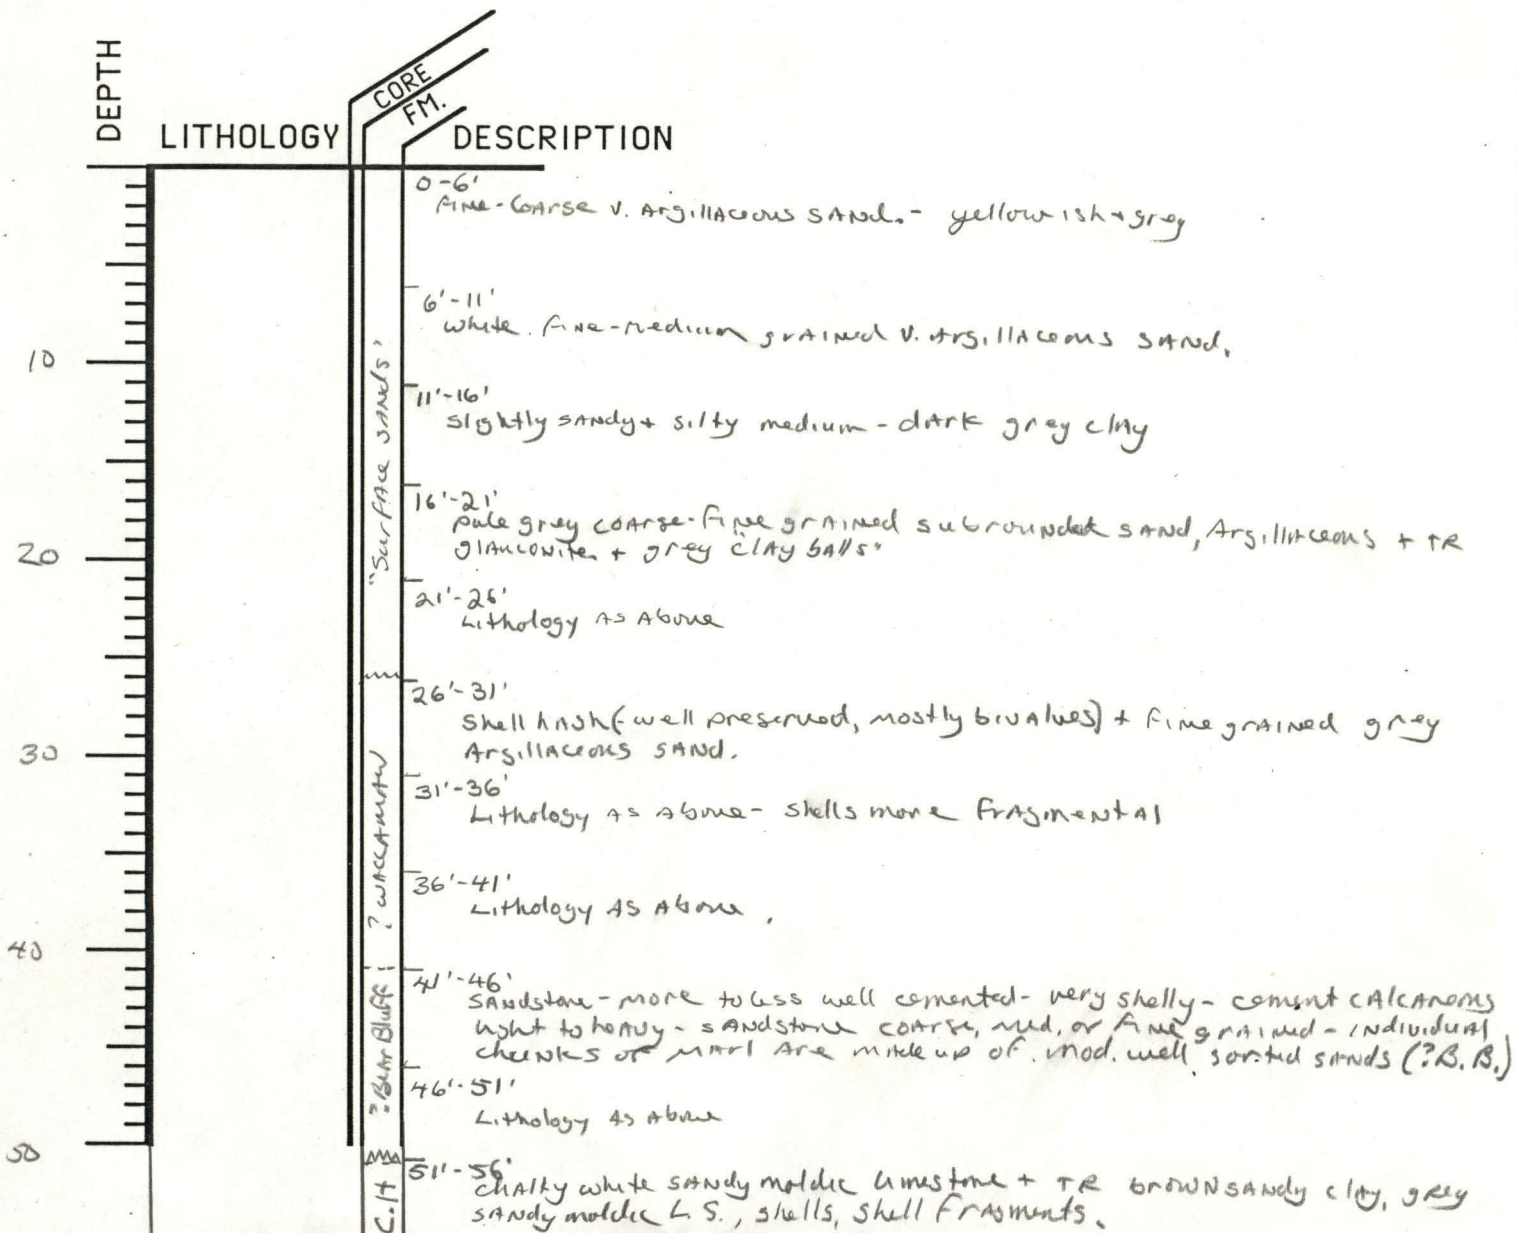 DEPTH
LITHOLOGY
CORE
FM.
DESCRIPTION
0-6'
Fine-Coarse v. Argillaceous SAND.- yellowish + grey
6'-11'
White. fine-medium grained V. Argillaceous SAND.
10
11'-16'
slightly sandy + silty medium-dark grey clay
"Surface sands"
16'-21'
pale grey coarse-fine grained subrounded SAND, Argillaceous + TR
20
glauconite + grey "clay balls"
21'-26'
Lithology As Above
26'-31'
Shell hash (-well preserved, mostly bivalves) + fine grained grey
30
Argillaceous SAND.
31'-36'
Lithology as above- shells more fragmental
? WACCAMAW
36'-41'
Lithology As Above.
40
41'-46'
SANDstone - more to less well cemented - very shelly - cement calcareous
light to heavy - sandstone coarse, med, or fine grained - individual
chunks of marl are made up of. mod. well sorted sands (?B.B.)
? Bear Bluff
46'-51'
Lithology As Above
50
51'-56'
Chalky white sandy moldic limestone + TR brown sandy clay, grey
sandy moldic L.S., shells, shell fragments.
C.H